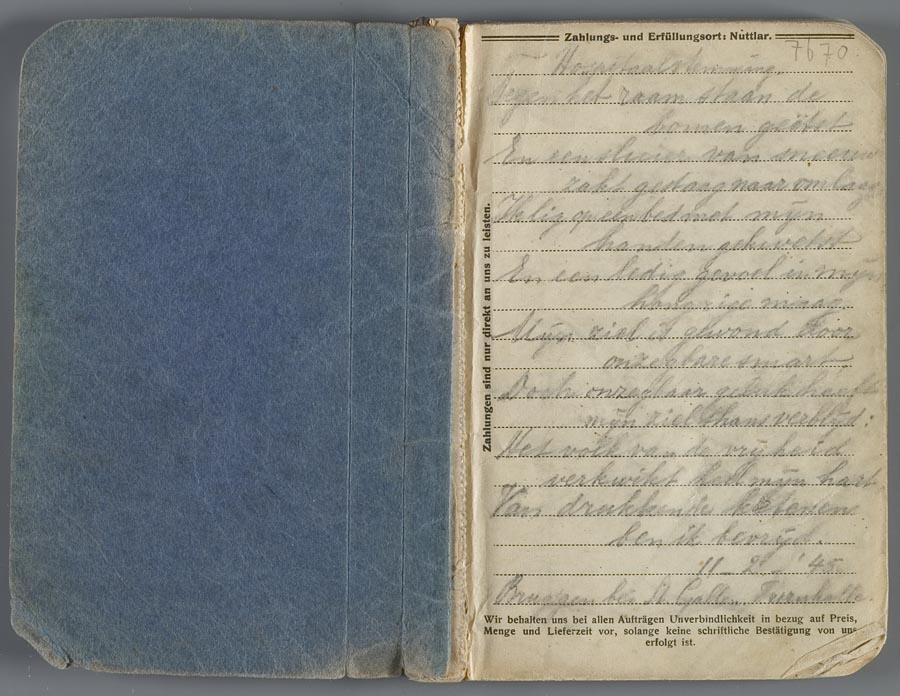 Zahlungs- und Erfüllungsort: Nuttlar.
7670
Hospitaalstemming.
Tegen het raam staan de
bomen geëtst
En een sluier van sneeuw
zakt gestaag naar omlaag
Ik lig op een bed met mijn
handen gekwetst
En een ledig gevoel in mijn
hongrige maag.
Mijn ziel is gewond door
onzegbare smart
Doch onzegbaar geluk heeft
mijn ziel thans verblijd:
Het volk van de vrijheid
verkwikt heel mijn hart
Van drukkende ketenen
ben ik bevrijd.
11 - 2 - '45
Bruggen bei St Gallen, Turnhalle.
Zahlungen sind nur direkt an uns zu leisten.
Wir behalten uns bei allen Aufträgen Unverbindlichkeit in bezug auf Preis,
Menge und Lieferzeit vor, solange keine schriftliche Bestätigung von uns
erfolgt ist.